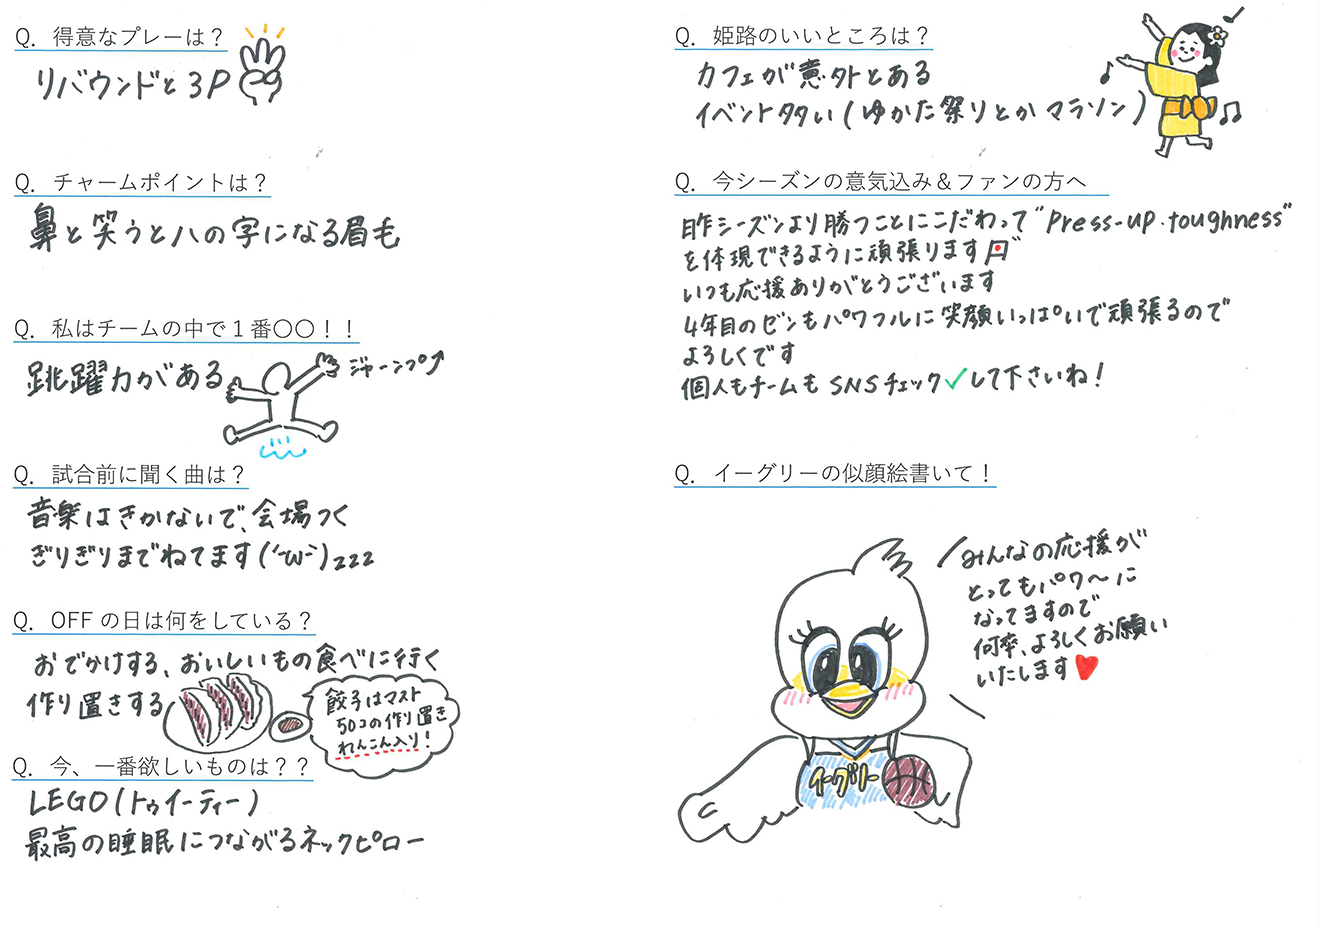 Q. 得意なプレーは？
リバウンドと3P
Q. チャームポイントは？
鼻と笑うとハの字になる眉毛
Q. 私はチームの中で１番〇〇！！
跳躍力がある
ジャーンプ↑
Q. 試合前に聞く曲は？
音楽はきかないで、会場つく
ぎりぎりまでねてます(´-ω-`)zzz
Q. OFFの日は何をしている？
おでかけする、おいしいもの食べに行く
作り置きする
餃子はマスト
50コの作り置き
れんこん入り！
Q. 今、一番欲しいものは？？
LEGO(トゥイーティー)
最高の睡眠につながるネックピロー
Q. 姫路のいいところは？
カフェが意外とある
イベント多い(ゆかた祭りとかマラソン)
Q. 今シーズンの意気込み＆ファンの方へ
昨シーズンより勝つことにこだわって“Press-up・toughness”
を体現できるように頑張ります
いつも応援ありがとうございます
4年目のゼンもパワフルに笑顔いっぱいで頑張るので
よろしくです
個人もチームもSNSチェック✓して下さいね！
Q. イーグリーの似顔絵書いて！
みんなの応援が
とってもパワ〜に
なってますので
何卒、よろしくお願い
いたします♥
イーグリー